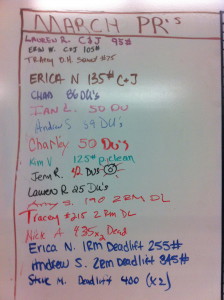 MARCH PR's
LAUREN R. C+J 95#
ERIN W. C+J 105#
TRACEY O.H. Squat #75
ERICA N 135# C+J
CHAD 86 DU's
IAN L. 50 DU
Andrew S 59 DU's
Charley 50 DU's
Kim V 125# p.clean
Jenn R. DU's
Lauren R 25 DU's
Amy S. 190 2RM DL
Tracey #215 2RM DL
Nick A. 435x2 Dead
Erica N. 1RM Deadlift 255#
Andrew S. 2RM Deadlift 345#
Steve M. Deadlift 400 (x2)